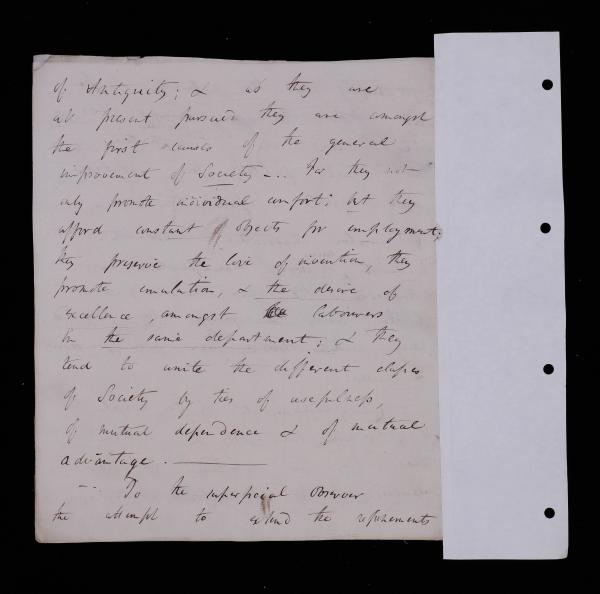 of Antiquity; & as they are
at present pursued they are amongst
the first causes of the general
improvement of Society -.. For they not
only promote individual comfort; but they
afford constant objects for employment;
they preserve the love of invention, they
promote emulation, & the desire of
excellence, amongst labourers
in the same department; & they
tend to unite the different classes
of Society by ties of usefulness,
of mutual dependence & of mutual
advantage. —
-.. To the superficial observer
the attempt to extend the refinements